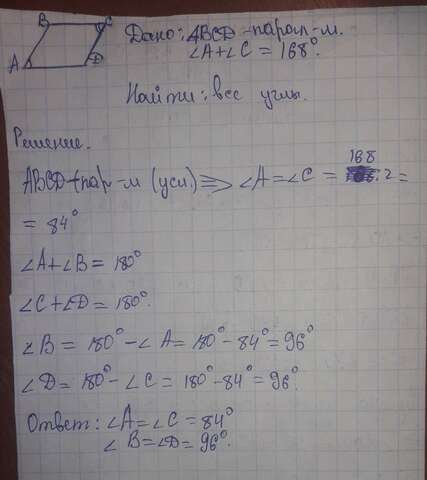 B C
A D
Дано: ABCD - парал-м.
∠A+∠C = 168°.
Найти: все углы.
Решение.
ABCD-пар-м (усл.) ⇒ ∠A=∠C = 168 : 2 =
= 84°
∠A+∠B = 180°
∠C+∠D = 180°.
∠B = 180°-∠A = 180°-84° = 96°
∠D = 180°-∠C = 180°-84° = 96°.
Ответ: ∠A=∠C = 84°
∠B=∠D = 96°.